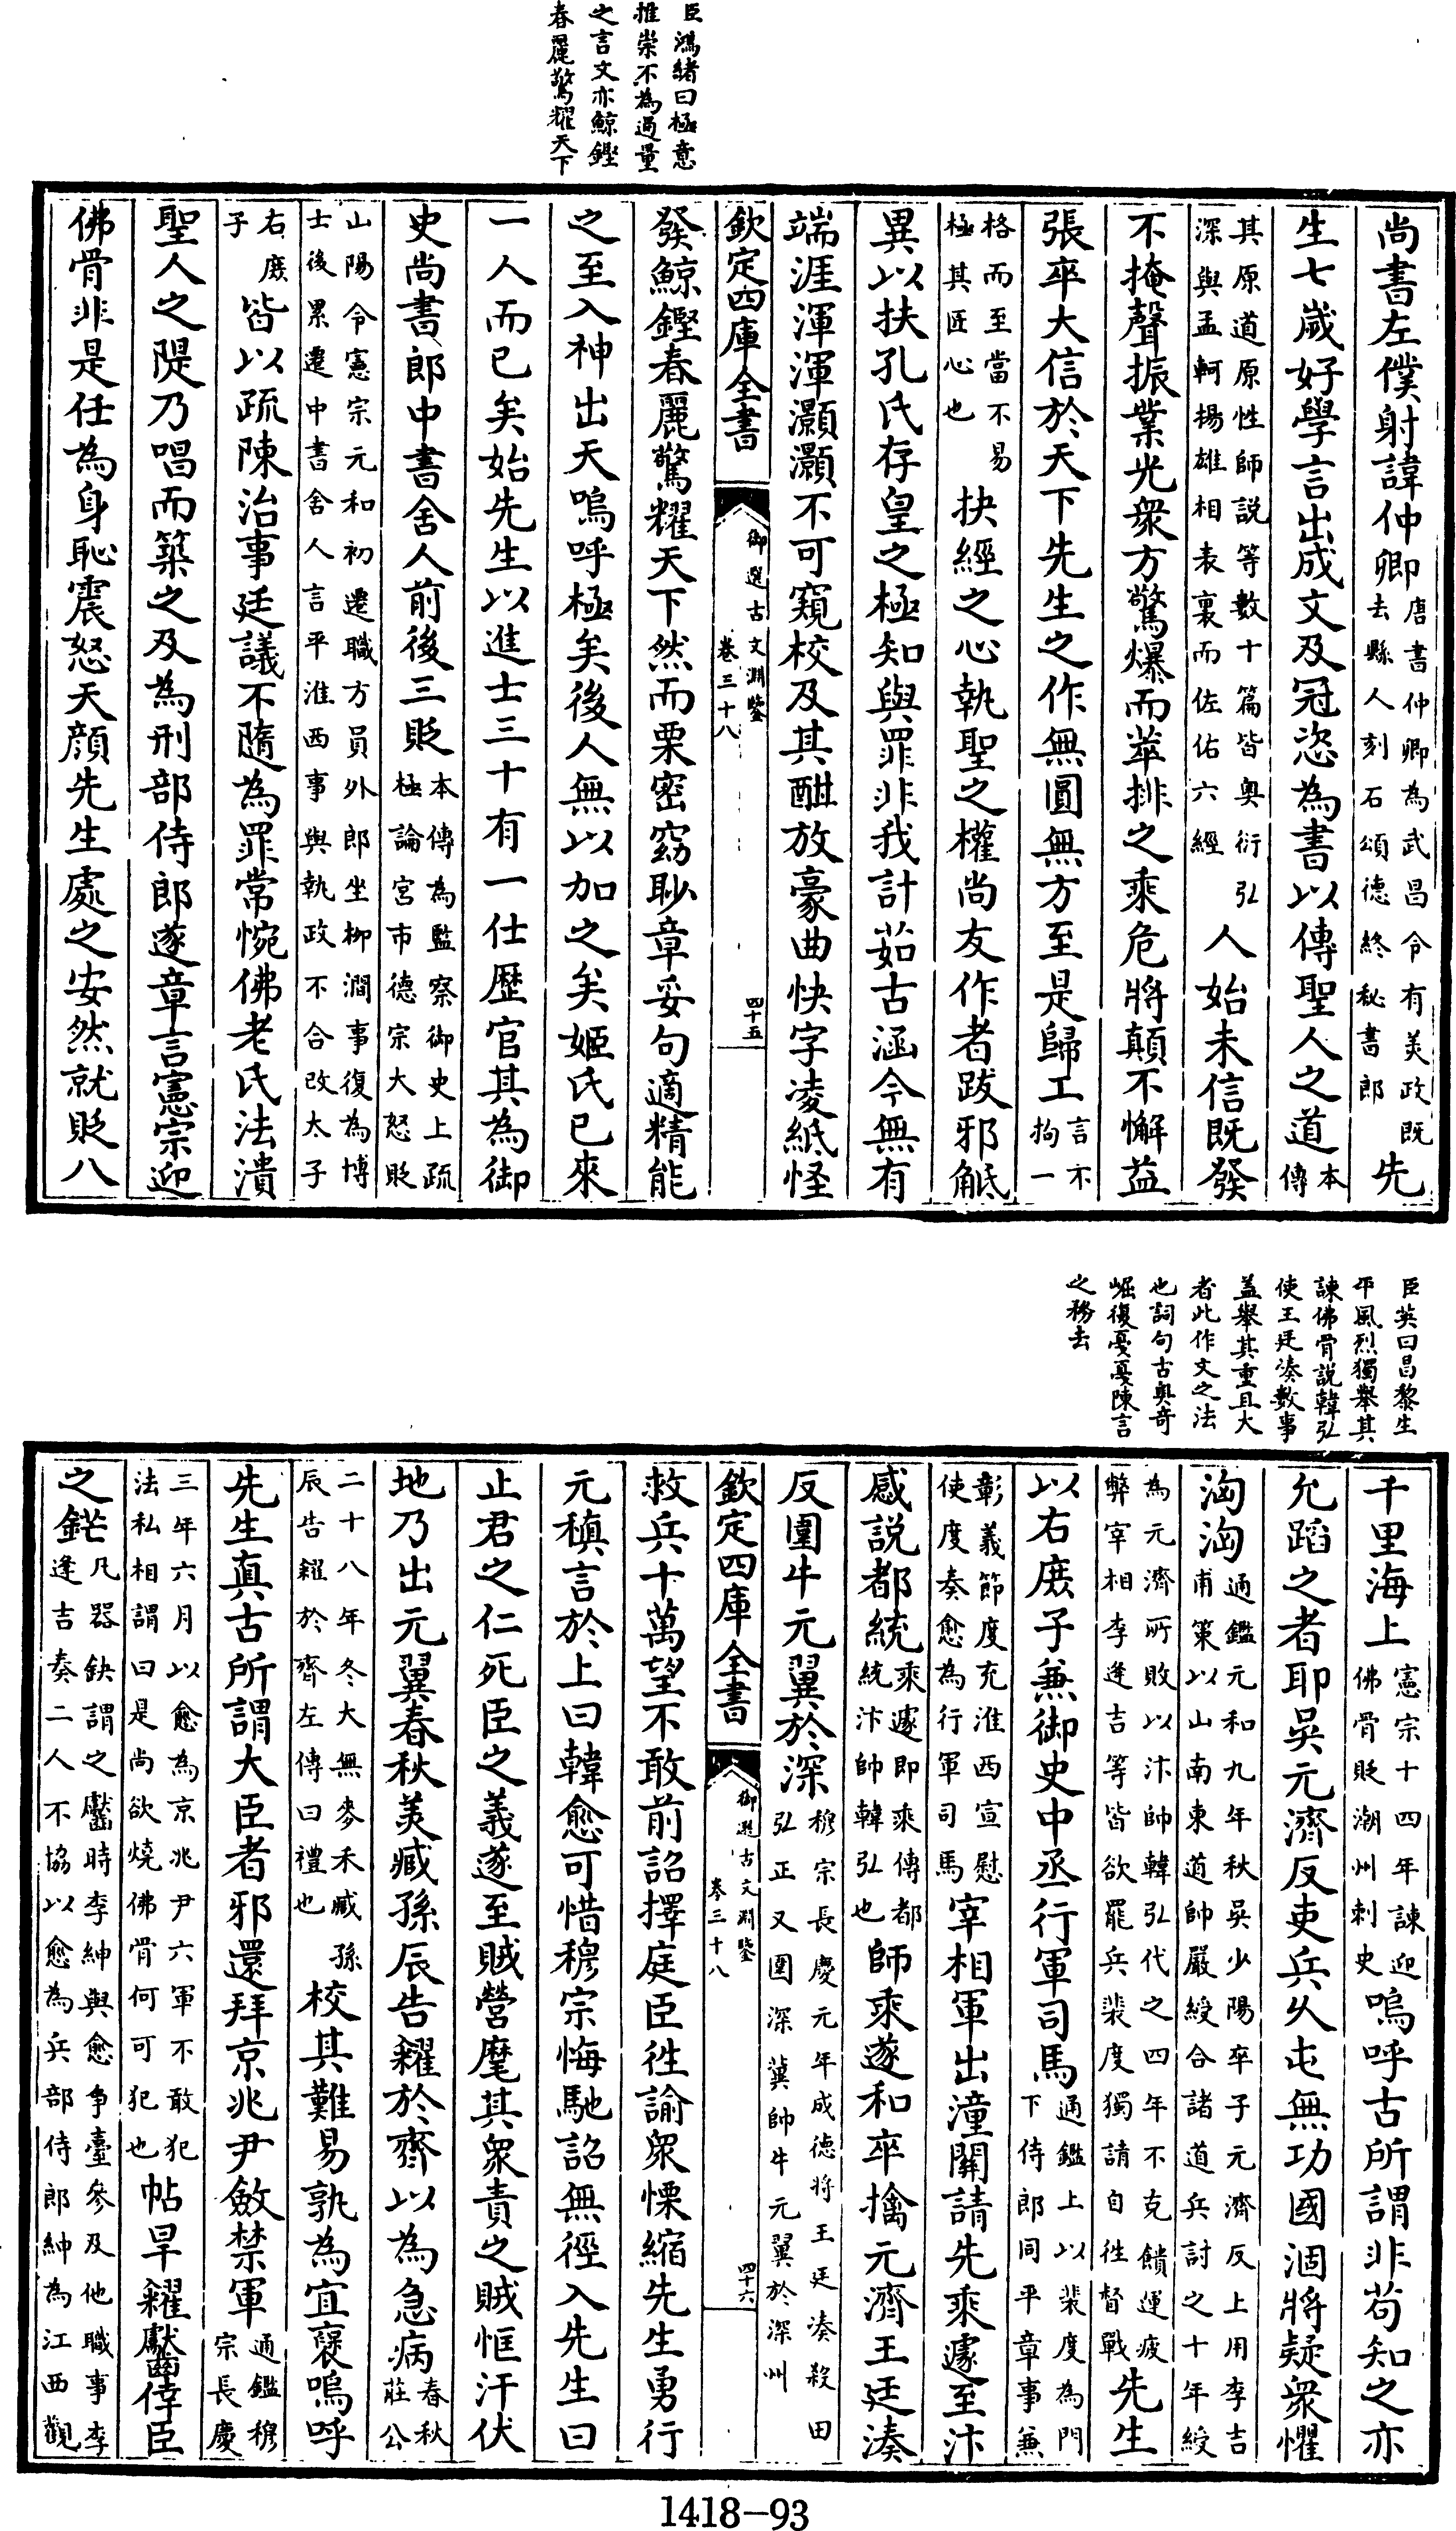 臣鴻緒曰極意
推崇不為過量
之言文亦鯨鏗
春麗驚耀天下
尚書左僕射諱仲卿唐書仲卿為武昌令有美政既去縣人刻石頌德終秘書郎先
生七歲好學言出成文及冠恣為書以傳聖人之道本傳
其原道原性師説等數十篇皆奥衍弘深與孟軻楊雄相表裏而佐佑六經人始未信既發
不掩聲振業光衆方驚爆而萃排之乘危將顛不懈益
張卒大信於天下先生之作無圓無方至是歸工言不拘一
格而至當不易極其匠心也抉經之心執聖之權尚友作者跋邪觝
異以扶孔氏存皇之極知與罪非我計茹古涵今無有
端涯渾渾灝灝不可窺校及其酣放豪曲快字凌紙怪
欽定四庫全書
御選古文淵鑒
卷三十八
四十五
發鯨鏗春麗驚耀天下然而栗密窈眇章妥句適精能
之至入神出天嗚呼極矣後人無以加之矣姬氏已來
一人而已矣始先生以進士三十有一仕歴官其為御
史尚書郎中書舍人前後三貶本傳為監察御史上疏極論宮市德宗大怒貶
山陽令憲宗元和初遷職方員外郎坐柳澗事復為博士後累遷中書舍人言平淮西事與執政不合改太子
右庶子皆以疏陳治事廷議不隨為罪常惋佛老氏法潰
聖人之隄乃唱而築之及為刑部侍郎遂章言憲宗迎
佛骨非是任為身恥震怒天顔先生處之安然就貶八
臣英曰昌黎生
平風烈獨舉其
諫佛骨説韓弘
使王廷湊數事
蓋舉其重且大
者此作文之法
也詞句古奥奇
崛復戞戞陳言
之務去
千里海上憲宗十四年諫迎佛骨貶潮州刺史嗚呼古所謂非苟知之亦
允蹈之者耶吳元濟反吏兵久屯無功國涸將疑衆懼
洶洶通鑑元和九年秋吳少陽卒子元濟反上用李吉甫策以山南東道帥嚴綬合諸道兵討之十年綬
為元濟所敗以汴帥韓弘代之四年不克饋運疲弊宰相李逢吉等皆欲罷兵裴度獨請自徃督戰先生
以右庶子兼御史中丞行軍司馬通鑑上以裴度為門下侍郎同平章事兼
彰義節度充淮西宣慰使度奏愈為行軍司馬宰相軍出潼關請先乘遽至汴
感説都統乘遽即乘傳都統汴帥韓弘也師乘遂和卒擒元濟王廷湊
反圍牛元翼於深穆宗長慶元年成德將王廷湊殺田弘正又圍深冀帥牛元翼於深州
欽定四庫全書
御選古文淵鑒
卷三十八
四十六
救兵十萬望不敢前詔擇庭臣徃諭衆慄縮先生勇行
元稹言於上曰韓愈可惜穆宗悔馳詔無徑入先生曰
止君之仁死臣之義遂至賊營麾其衆責之賊恇汗伏
地乃出元翼春秋美臧孫辰告糴於齊以為急病春秋莊公
二十八年冬大無麥禾臧孫辰告糴於齊左傳曰禮也校其難易孰為宜褒嗚呼
先生真古所謂大臣者邪還拜京兆尹斂禁軍通鑑穆宗長慶
三年六月以愈為京兆尹六軍不敢犯法私相謂曰是尚欲燒佛骨何可犯也帖旱糴㱔倖臣
之鋩凡器缺謂之齾時李紳與愈爭臺參及他職事李逢吉奏二人不協以愈為兵部侍郎紳為江西觀
1418-93